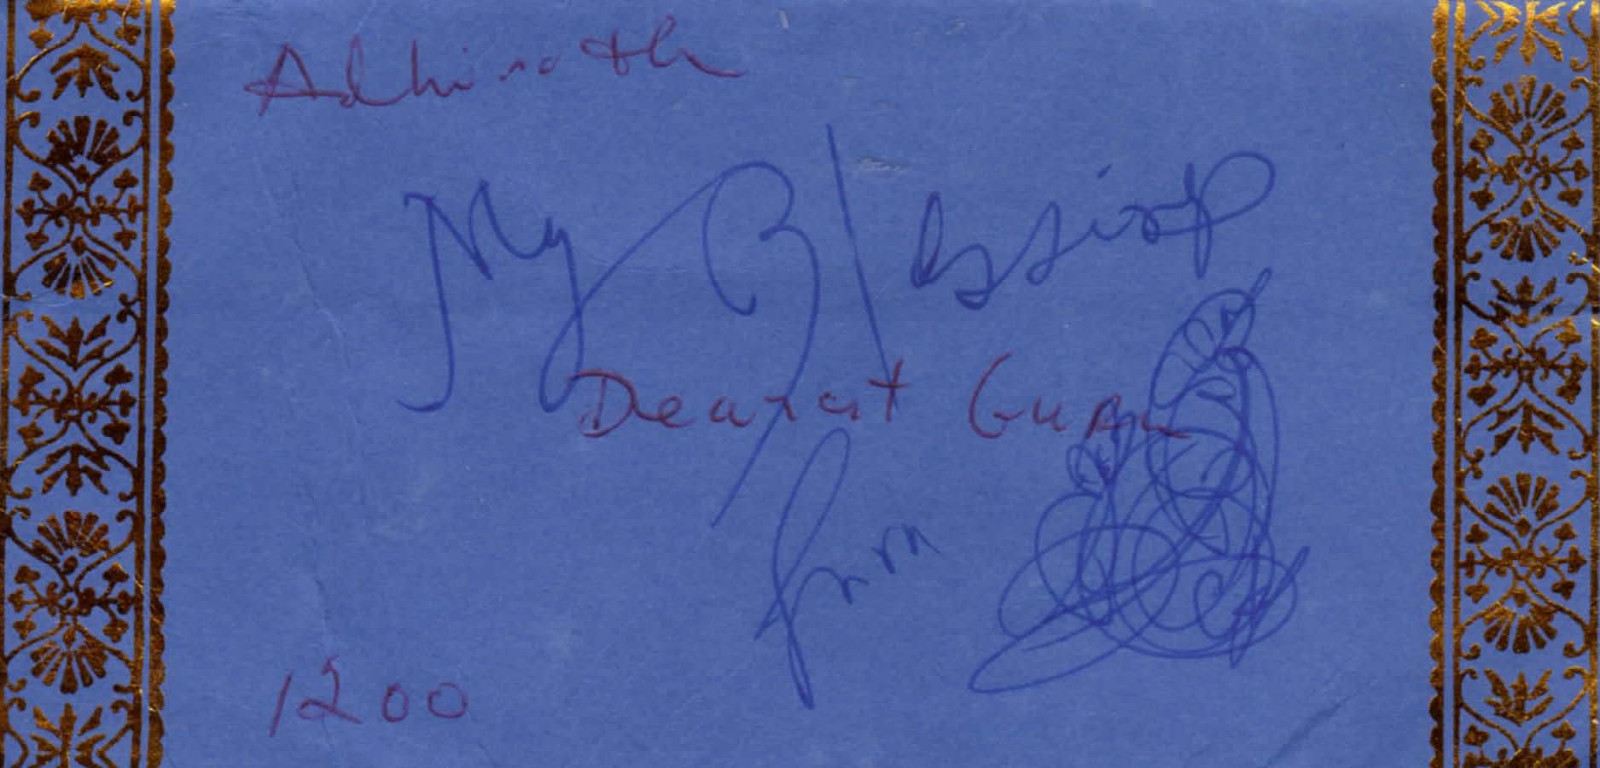 Adhirath
My Blessings
Dearest Guru
from
1200